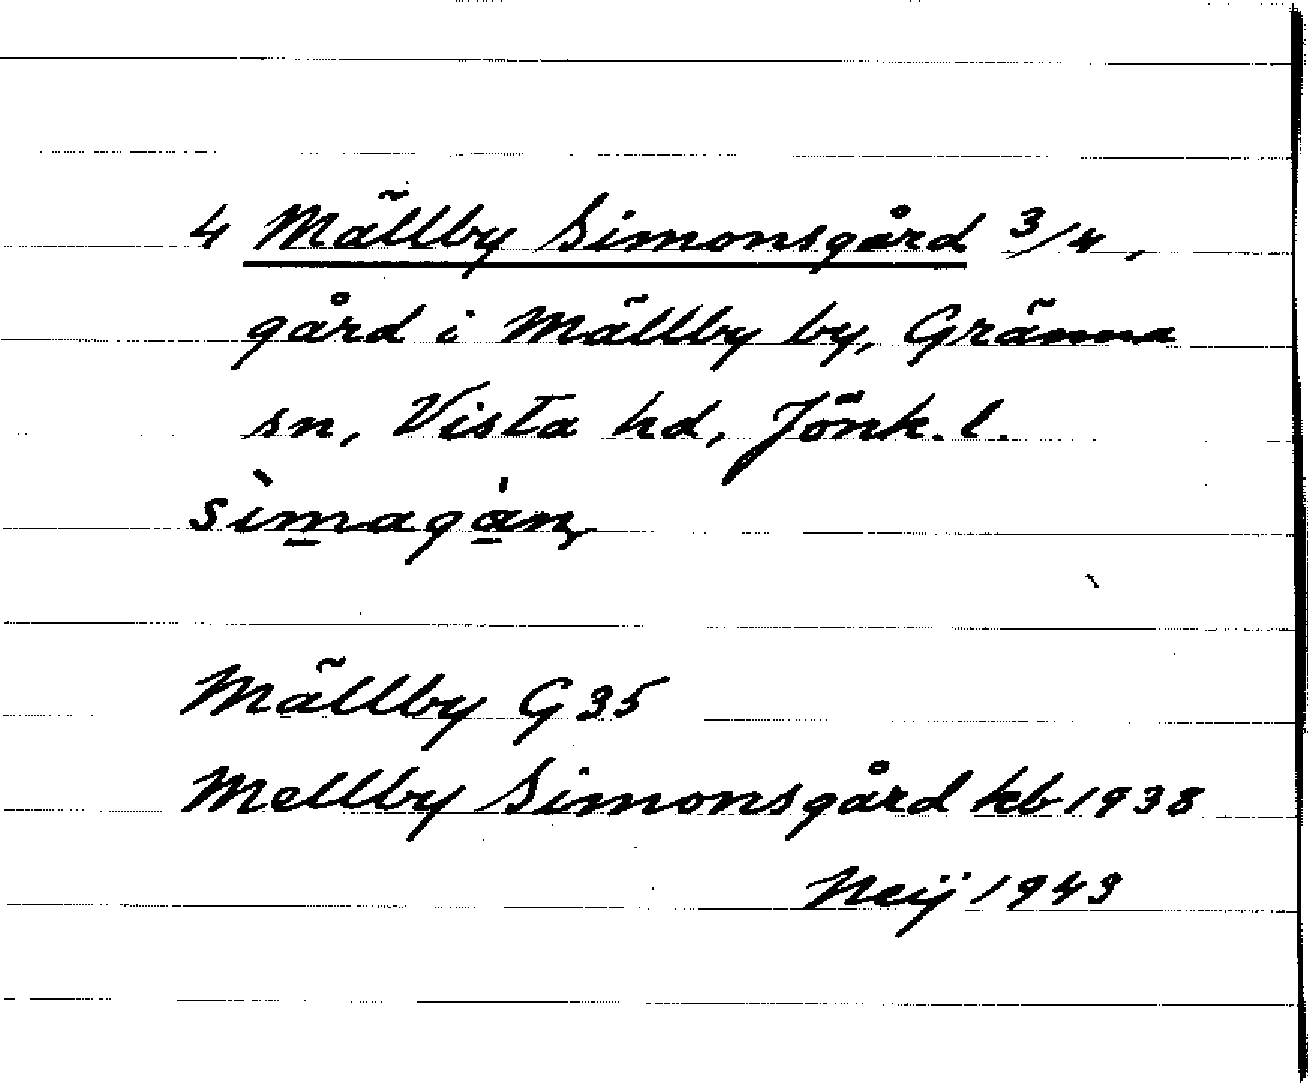 4 Mällby Simonsgård 3/4,
gård i Mällby by, Gränna
sn, Vista hd, Jönk. l.
Mällby G35
Mellby Simonsgård kb 1938
Neij 1943